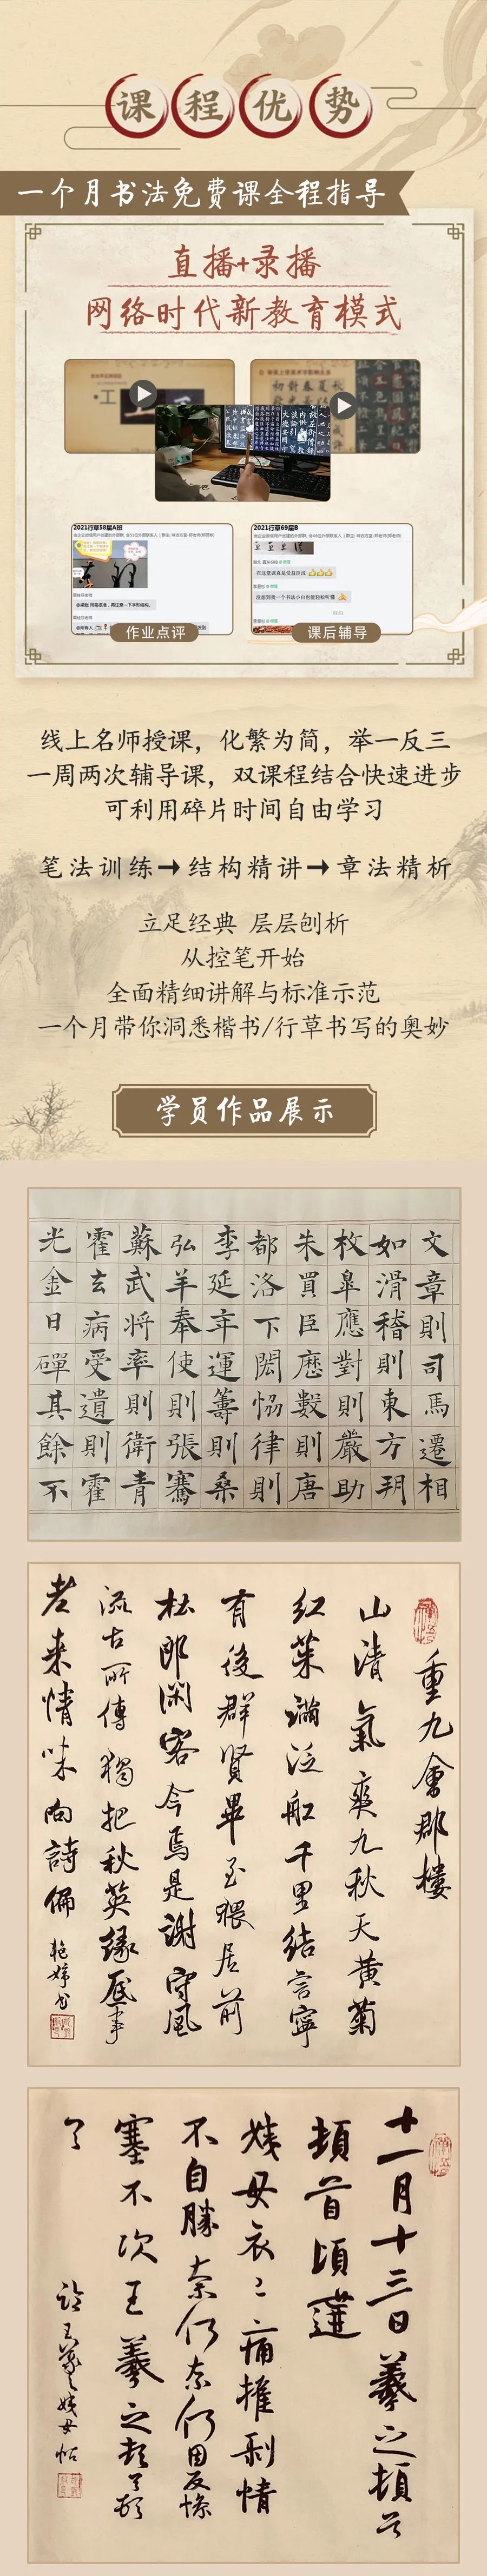 课程优势
一个月书法免费课全程指导
直播+录播
网络时代新教育模式
2021行草58届A班
2021行草69届B
在这里训真是受益匪浅
没想到我一个书法小白也能轻松听懂
作业点评
课后辅导
线上名师授课，化繁为简，举一反三
一周两次辅导课，双课程结合快速进步
可利用碎片时间自由学习
笔法训练→结构精讲→章法精析
立足经典 层层刨析
从控笔开始
全面精细讲解与标准示范
一个月带你洞悉楷书/行草书写的奥妙
学员作品展示
文章則司馬遷相
如滑稽則東方朔
枚皐應對則嚴助
朱買臣曆數則唐
都洛下閎恊律則
李延年運籌則桑
弘羊奉使則張騫
蘇武将率則衛青
霍去病受遺則霍
光金日磾其餘不
重九會郡樓
山清氣爽九秋天黄菊
红茱滿泛船千里結言寧
有後群賢畢至猥居前
杜郎閑客今焉是謝守風
流古所傳獨把秋英緣底事
老来情味向詩偏
十一月十三日羲之頓首
頓首頃遘
姨母哀〻痛摧剥情
不自勝奈何奈何因反惨
塞不次王羲之頓首頓
首
臨王羲之姨母帖